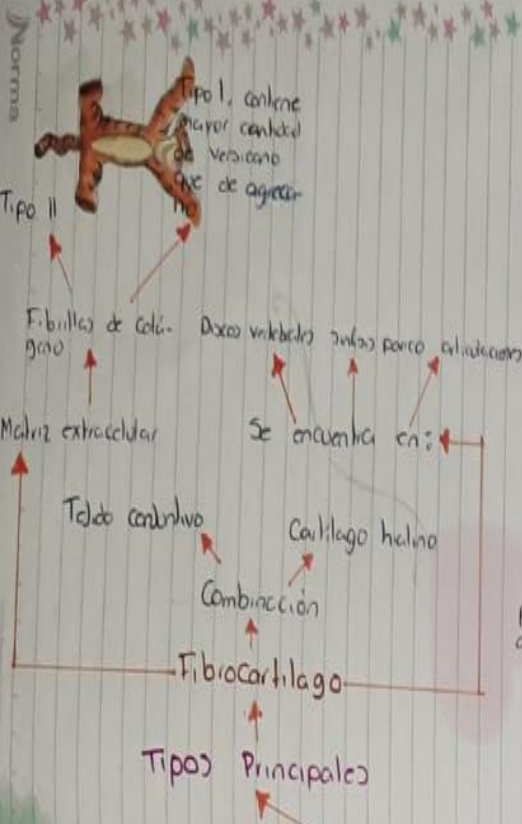 Norma
Tipo I, contiene
mayor cantidad
de versicano
que de agreca-
no
Tipo II
Fibrillas de colá-
geno
Discos vertebrales
articulaciones
Matriz extracelular
Se encuentra en:
Tejido conjuntivo
Cartilago hialino
Combinación
Fibrocartilago
Tipos Principales